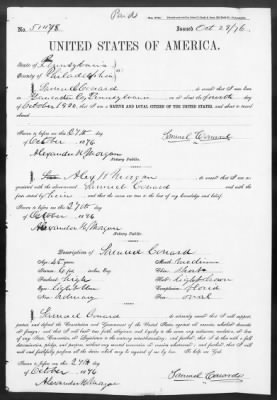 Paid
No. 51178 Issued Oct 28/76.
UNITED STATES OF AMERICA.
State of Pennsylvania
County of Philadelphia
I Samuel Conard do swear that I was
born in Lancaster Co, Pennsylvania on or about the fourth day
of October 1830, that I am a NATIVE AND LOYAL CITIZEN OF THE UNITED STATES, and about to travel
abroad.
Sworn to before me this 27th day
of October 1876 Samuel Conard
Alexander H Morgan
Notary Public.
I, Alex H Morgan do swear that I am ac-
quainted with the above-named Samuel Conard and with the fact
stated by him and that the same is true to the best of my knowledge and belief.
Sworn to before me this 27th day
of October 1876
Alexander H Morgan
Notary Public.
Description of Samuel Conard
Age: 45 years Mouth: medium
Stature: 6 feet inches, Eng. Chin: short
Forehead: high Hair: light brown
Eyes: Complexion: florid
Nose: ordinary Face: oval
I, Samuel Conard do solemnly swear that I will support,
protect and defend the Constitution and Government of the United States against all enemies, whether domestic
or foreign; and that I will bear true faith, allegiance and loyalty to the same, any ordinance, resolution or law
of any State, Convention or Legislature to the contrary notwithstanding; and further, that I do this with a full
determination, pledge, and purpose, without any mental reservation or evasion whatsoever; and further, that I will
well and faithfully perform all the duties which may be required of me by law. So help me God.
Sworn to before me this 27th day
of October 1876
Alexander H Morgan Samuel Conard